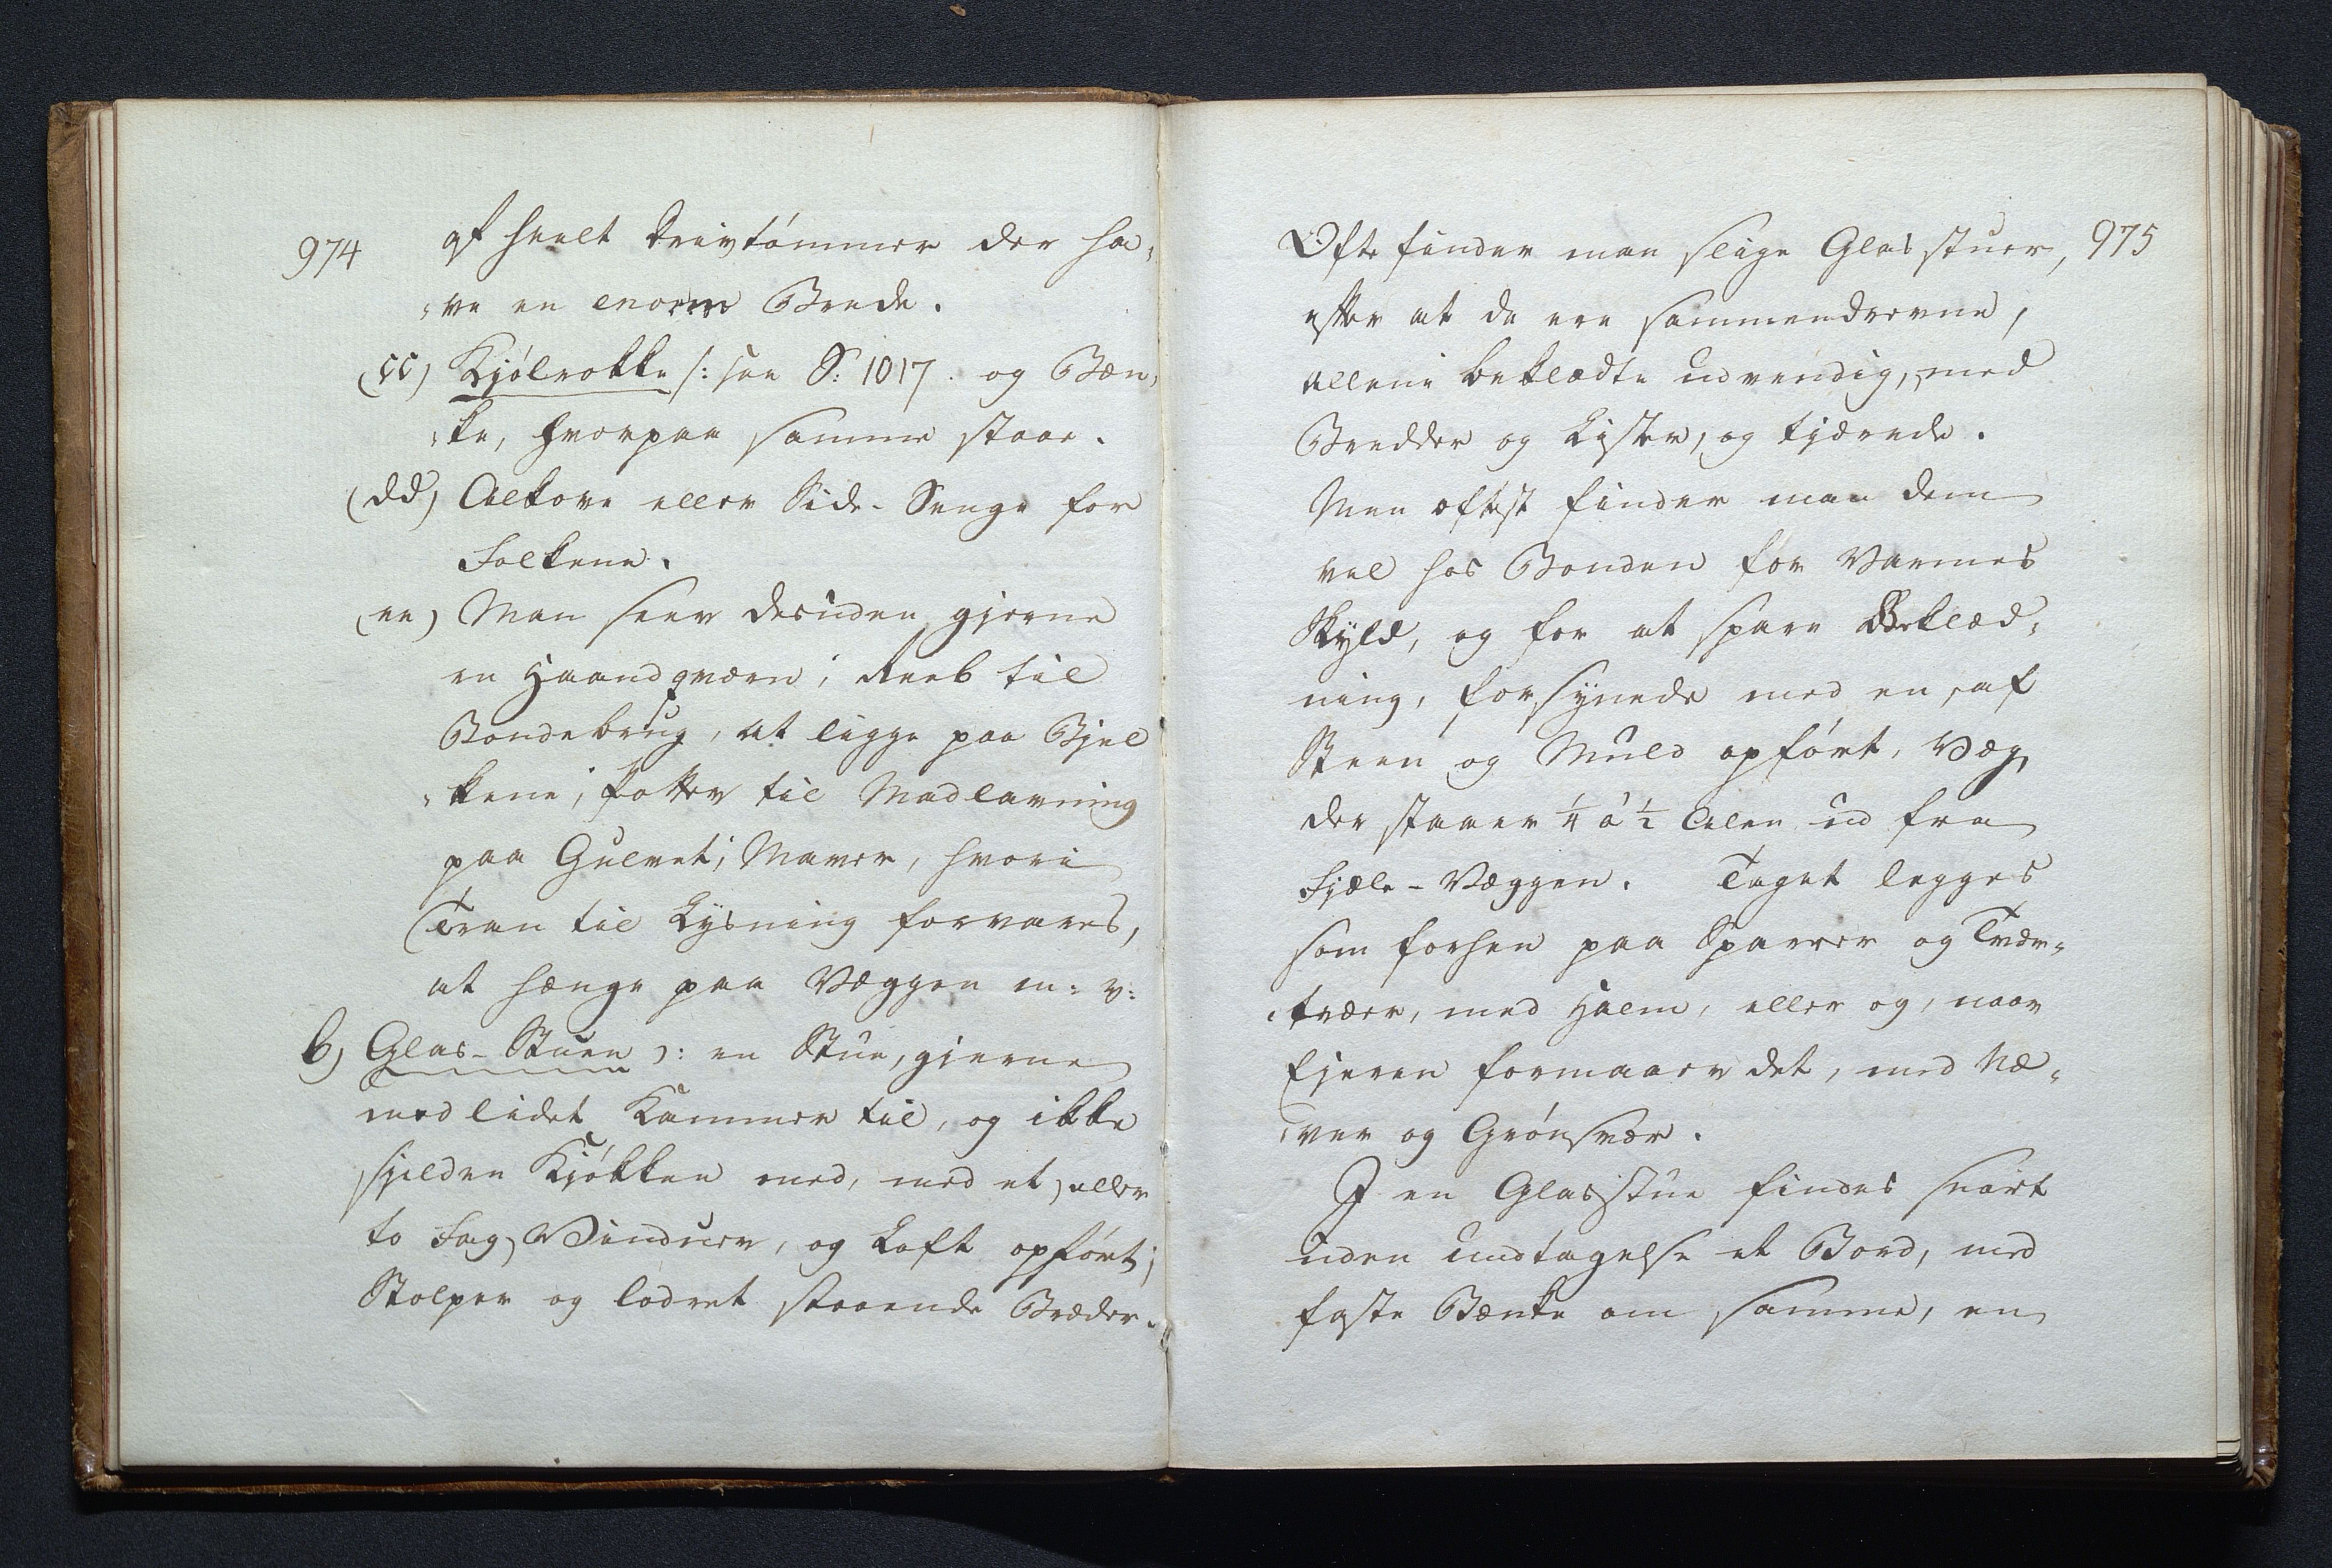 974
af heelt Drivtømmer der ha-
-ve en enorm Brede.
(cc) Kjølrokke /: see S: 1017. og Bæn-
-ke, hvorpaa samme staae.
(dd) Alkove eller Side-Senge for
Folkene.
(ee) Man seer desuden gjerne
en Haandqværn; Reeb til
Bondebrug, at ligge paa Bjel
-kene; Potter til Madlavning
paa Gulvet; Maver, hvori
Tran til Lysning forvares,
at hænge paa Væggen m: v:
b) Glas-Stuen ɔ: en Stue, gierne
med lidet Kammer til, og ikke
sjelden Kjøkken med, med et, eller
to Fag, Vinduer, og Loft opført;
Stolper og lodret staaende Bræder.
975
Ofte finder man slige Glasstuer,
efter at de ere sammendrevne,
allene beklædte udvendig, med
Bredder og Lister, og tjærede.
Men oftest finder man dem
vel hos Bonden for Varmes
Skyld, og for at spare Beklæd-
ning, forsynede med en, af
Steen og Muld opført, Væg,
der staaer ¼ à ½ Alen ud fra
Fjæle-Væggen. Taget legges
som forhen paa Sparrer og Tvær-
-træer, med Halm, eller og, naar
Ejeren formaaer det, med Næ-
-ver og Grønsvær.
I en Glasstue findes snart
uden Undtagelse et Bord, med
faste Bænke om samme, en